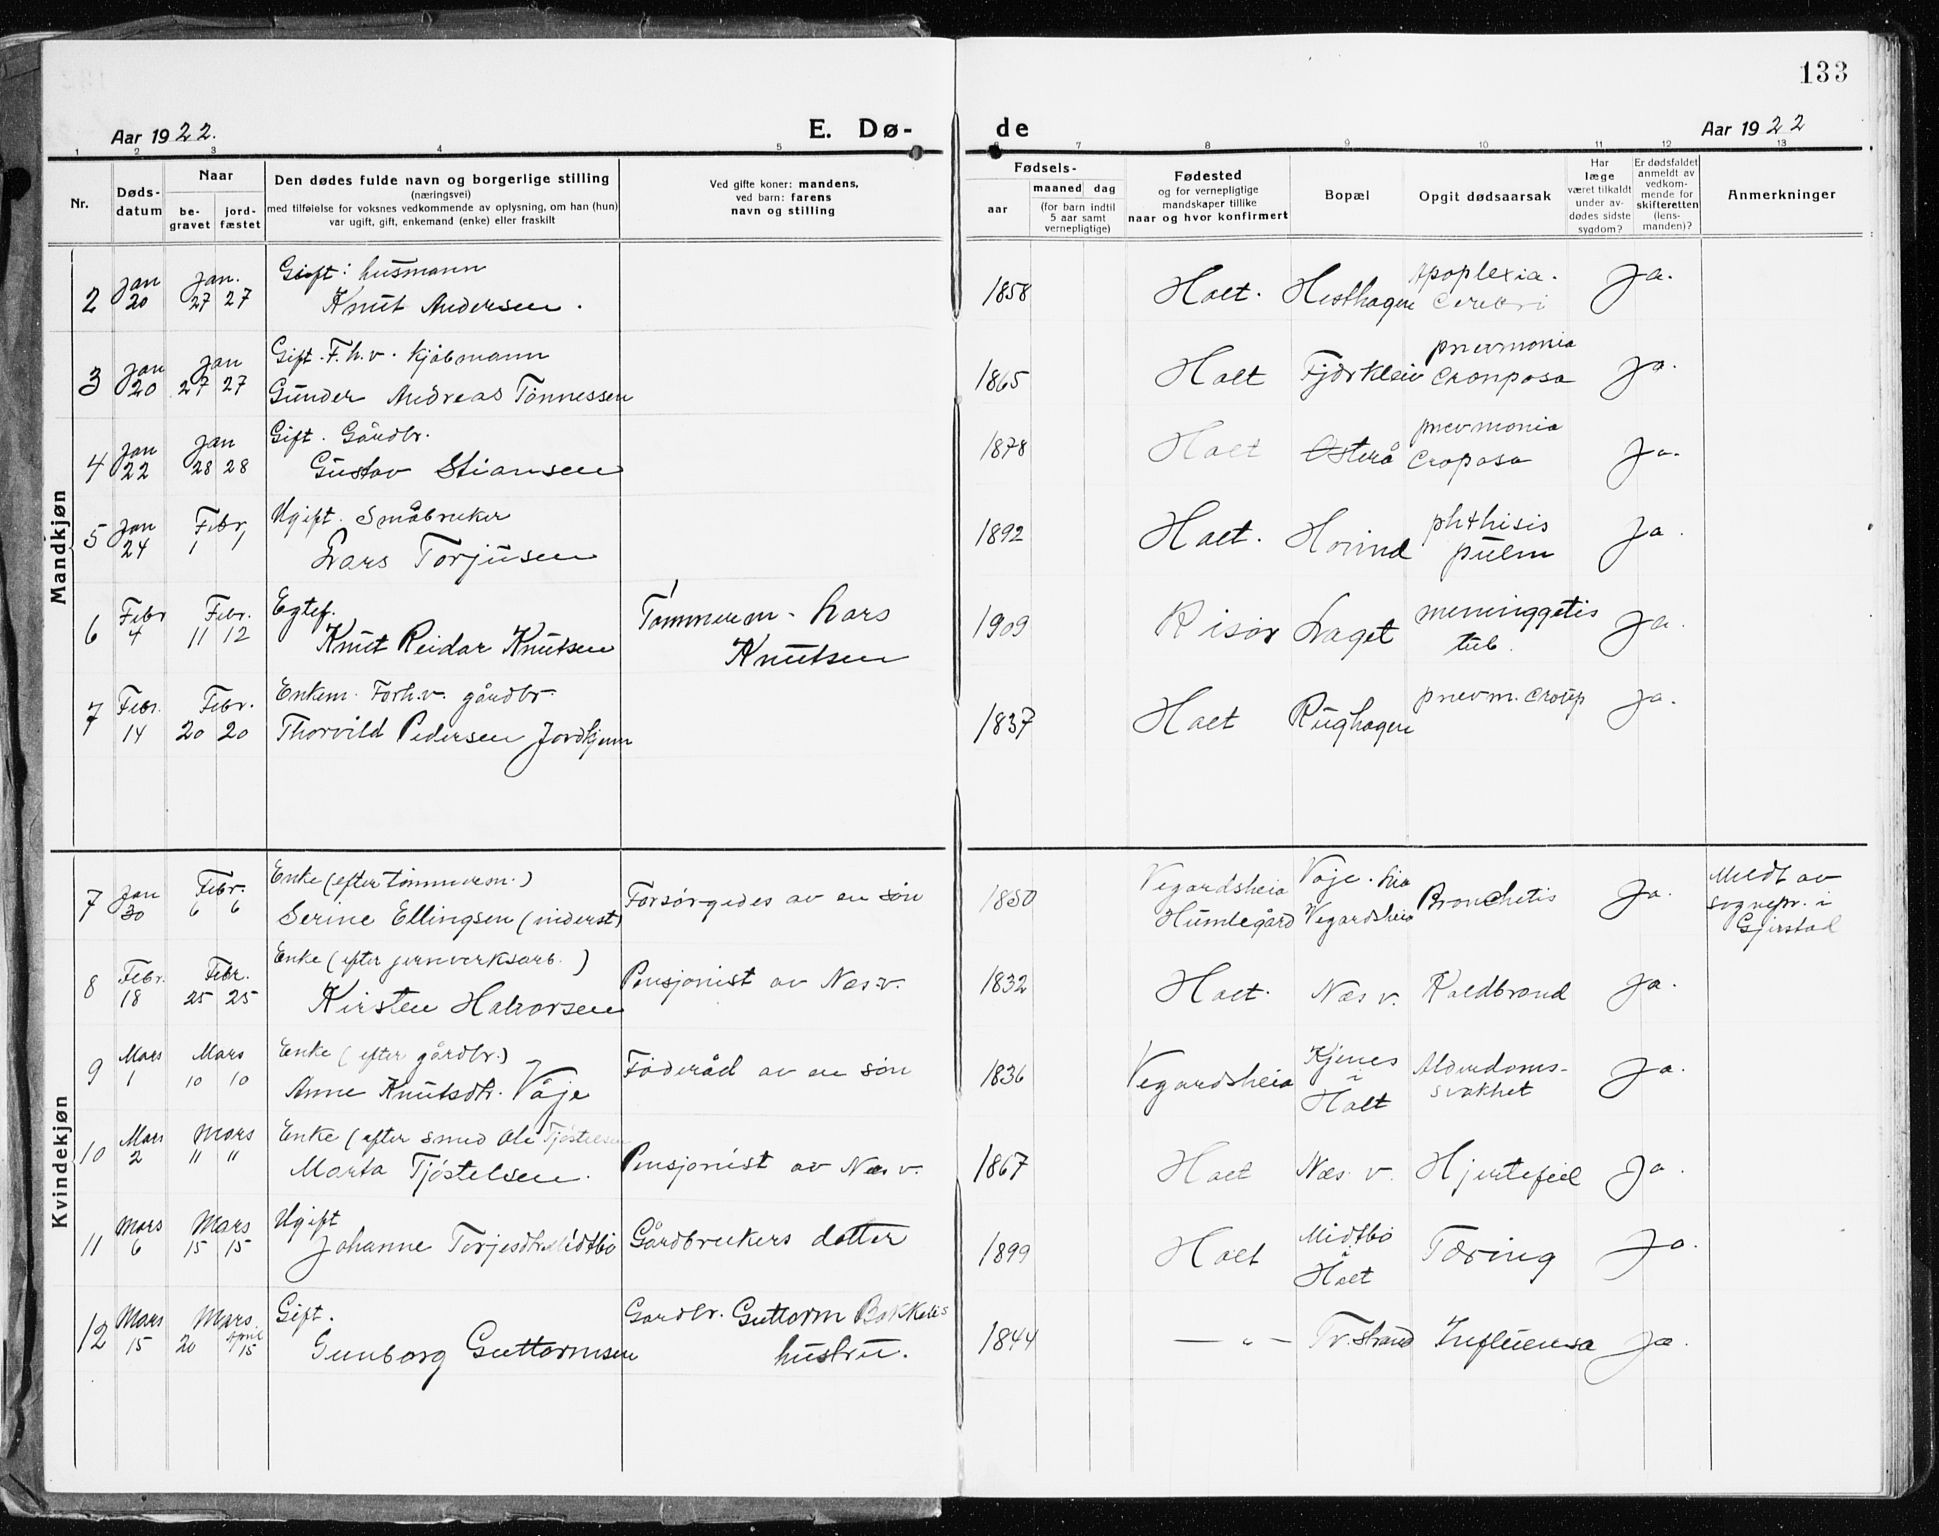 133
Aar 1922.
E. Dø-
de
Aar 1922
1 2 3 4 5 6 7 8 9 10 11 12 13
Nr.
Døds-
datum
Naar
be-
gravet
jord-
fæstet
Den dødes fulde navn og borgerlige stilling
(næringsvei)
med tilføielse for voksnes vedkommende av oplysning, om han (hun)
var ugift, gift, enkemand (enke) eller fraskilt
Ved gifte koner: mandens,
ved barn: farens
navn og stilling
Fødsels-
aar
maaned dag
(for barn indtil
5 aar samt
vernepligtige)
Fødested
og for vernepligtige
mandskaper tillike
naar og hvor konfirmert
Bopæl
Opgit dødsaarsak
Har
læge
været tilkaldt
under av-
dødes sidste
sygdom?
Er dødsfaldet
anmeldt av
vedkom-
mende for
skifteretten
(lens-
manden)?
Anmerkninger
Mandkjøn
2 Jan 20 Jan. 27 27 Gift: husmann
Knut Andersen. 1858 Holt. Hesthagen Apoplexia.
Cerebri Ja.
3 Jan 20 Jan 27 27 Gift. F.h.v. kjøbmann
Gunder Andreas Tønnessen 1865 Holt Fjærkleiv pnevmonia
Cronposa Ja.
4 Jan 22 Jan 28 28 Gift. Gårdbr.
Gustav Stiansen 1878 Holt Osterå pnevmonia
Croposa Ja.
5 Jan 24 Febr 1 1 Ugift. Småbruker
Lars Torjusen 1892 Holt. Hovind phthisis
pulm Ja.
6 Febr 4 Febr. 11 12 Egtef.
Knut Reidar Knutsen Tømmerm. Lars
Knutsen 1909 Risør Laget meninggetis
tub. Ja.
7 Febr. 14 Febr. 20 20 Enkem. Forh.v. gårdbr.
Thorvild Pedersen Jordkjenn 1837 Holt Rughagen pnevm. croup Ja.
Kvindekjøn
7 Jan 30 Febr. 6 6 Enke (efter tømmerm.)
Serine Ellingsen (inderst) Forsørgedes av en søn 1850 Vegardsheia
Humlegård Vaje. hia
Vegardsheia Bronchetis Ja. Meldt av
sognepr. i
Gjerstad
8 Febr. 18 Febr. 25 25 Enke (efter jernverksarb.)
Kirsten Halvorsen Pensjonist av Næs v. 1832 Holt. Næs v. Koldbrand Ja.
9 Mars 1 Mars 10 10 Enke (efter gårdbr.)
Anne Knutsdtr. Våje Føderåd av en søn 1836 Vegardsheia Kjenes
i
Holt Alderdoms-
svakhet Ja.
10 Mars 2 Mars " " Enke (efter smed Ole Tjøstelsen
Marta Tjøstelsen. Pensjonist av Næs v. 1867 Holt Næs v. Hjertefeil Ja.
11 Mars 6 Mars 15 15 Ugift
Johanne Terjesdtr. Midtbø Gårdbrukers datter 1899 Holt Midtbø
i
Holt Tæring Ja.
12 Mars 15 Mars. 20 April 15 Gift.
Gunborg Guttormsen Gardbr. Guttorm Bakkeles
hustru. 1844 — " — Tv.strand Influensa Ja.